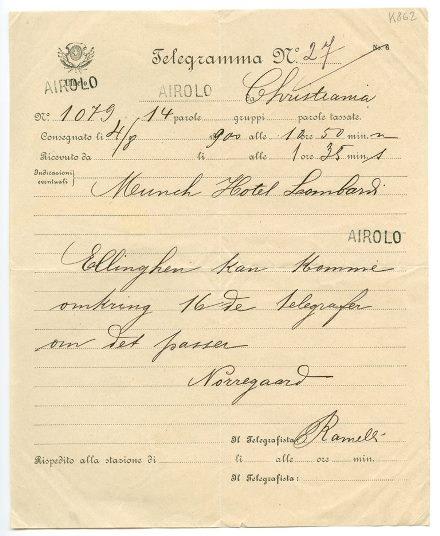 K862
Telegramma N.º 27 No. 6
AIROLO
AIROLO
Christiania
N.º 1079 14 parole gruppi parole tassate.
Consegnato li 4/8 1900 alle 12 ore 50 min. m
Ricevuto da li alle 1 ore 35 min. s
Indicazioni
eventuali
Munch Hotel Lombardi
AIROLO
Ellinghen kan komme
omkring 16 de telegrafer
om det passer
Norregaard
Il Telegrafista: Ramelli
Rispedito alla stazione di li alle ore min.
Il Telegrafista: